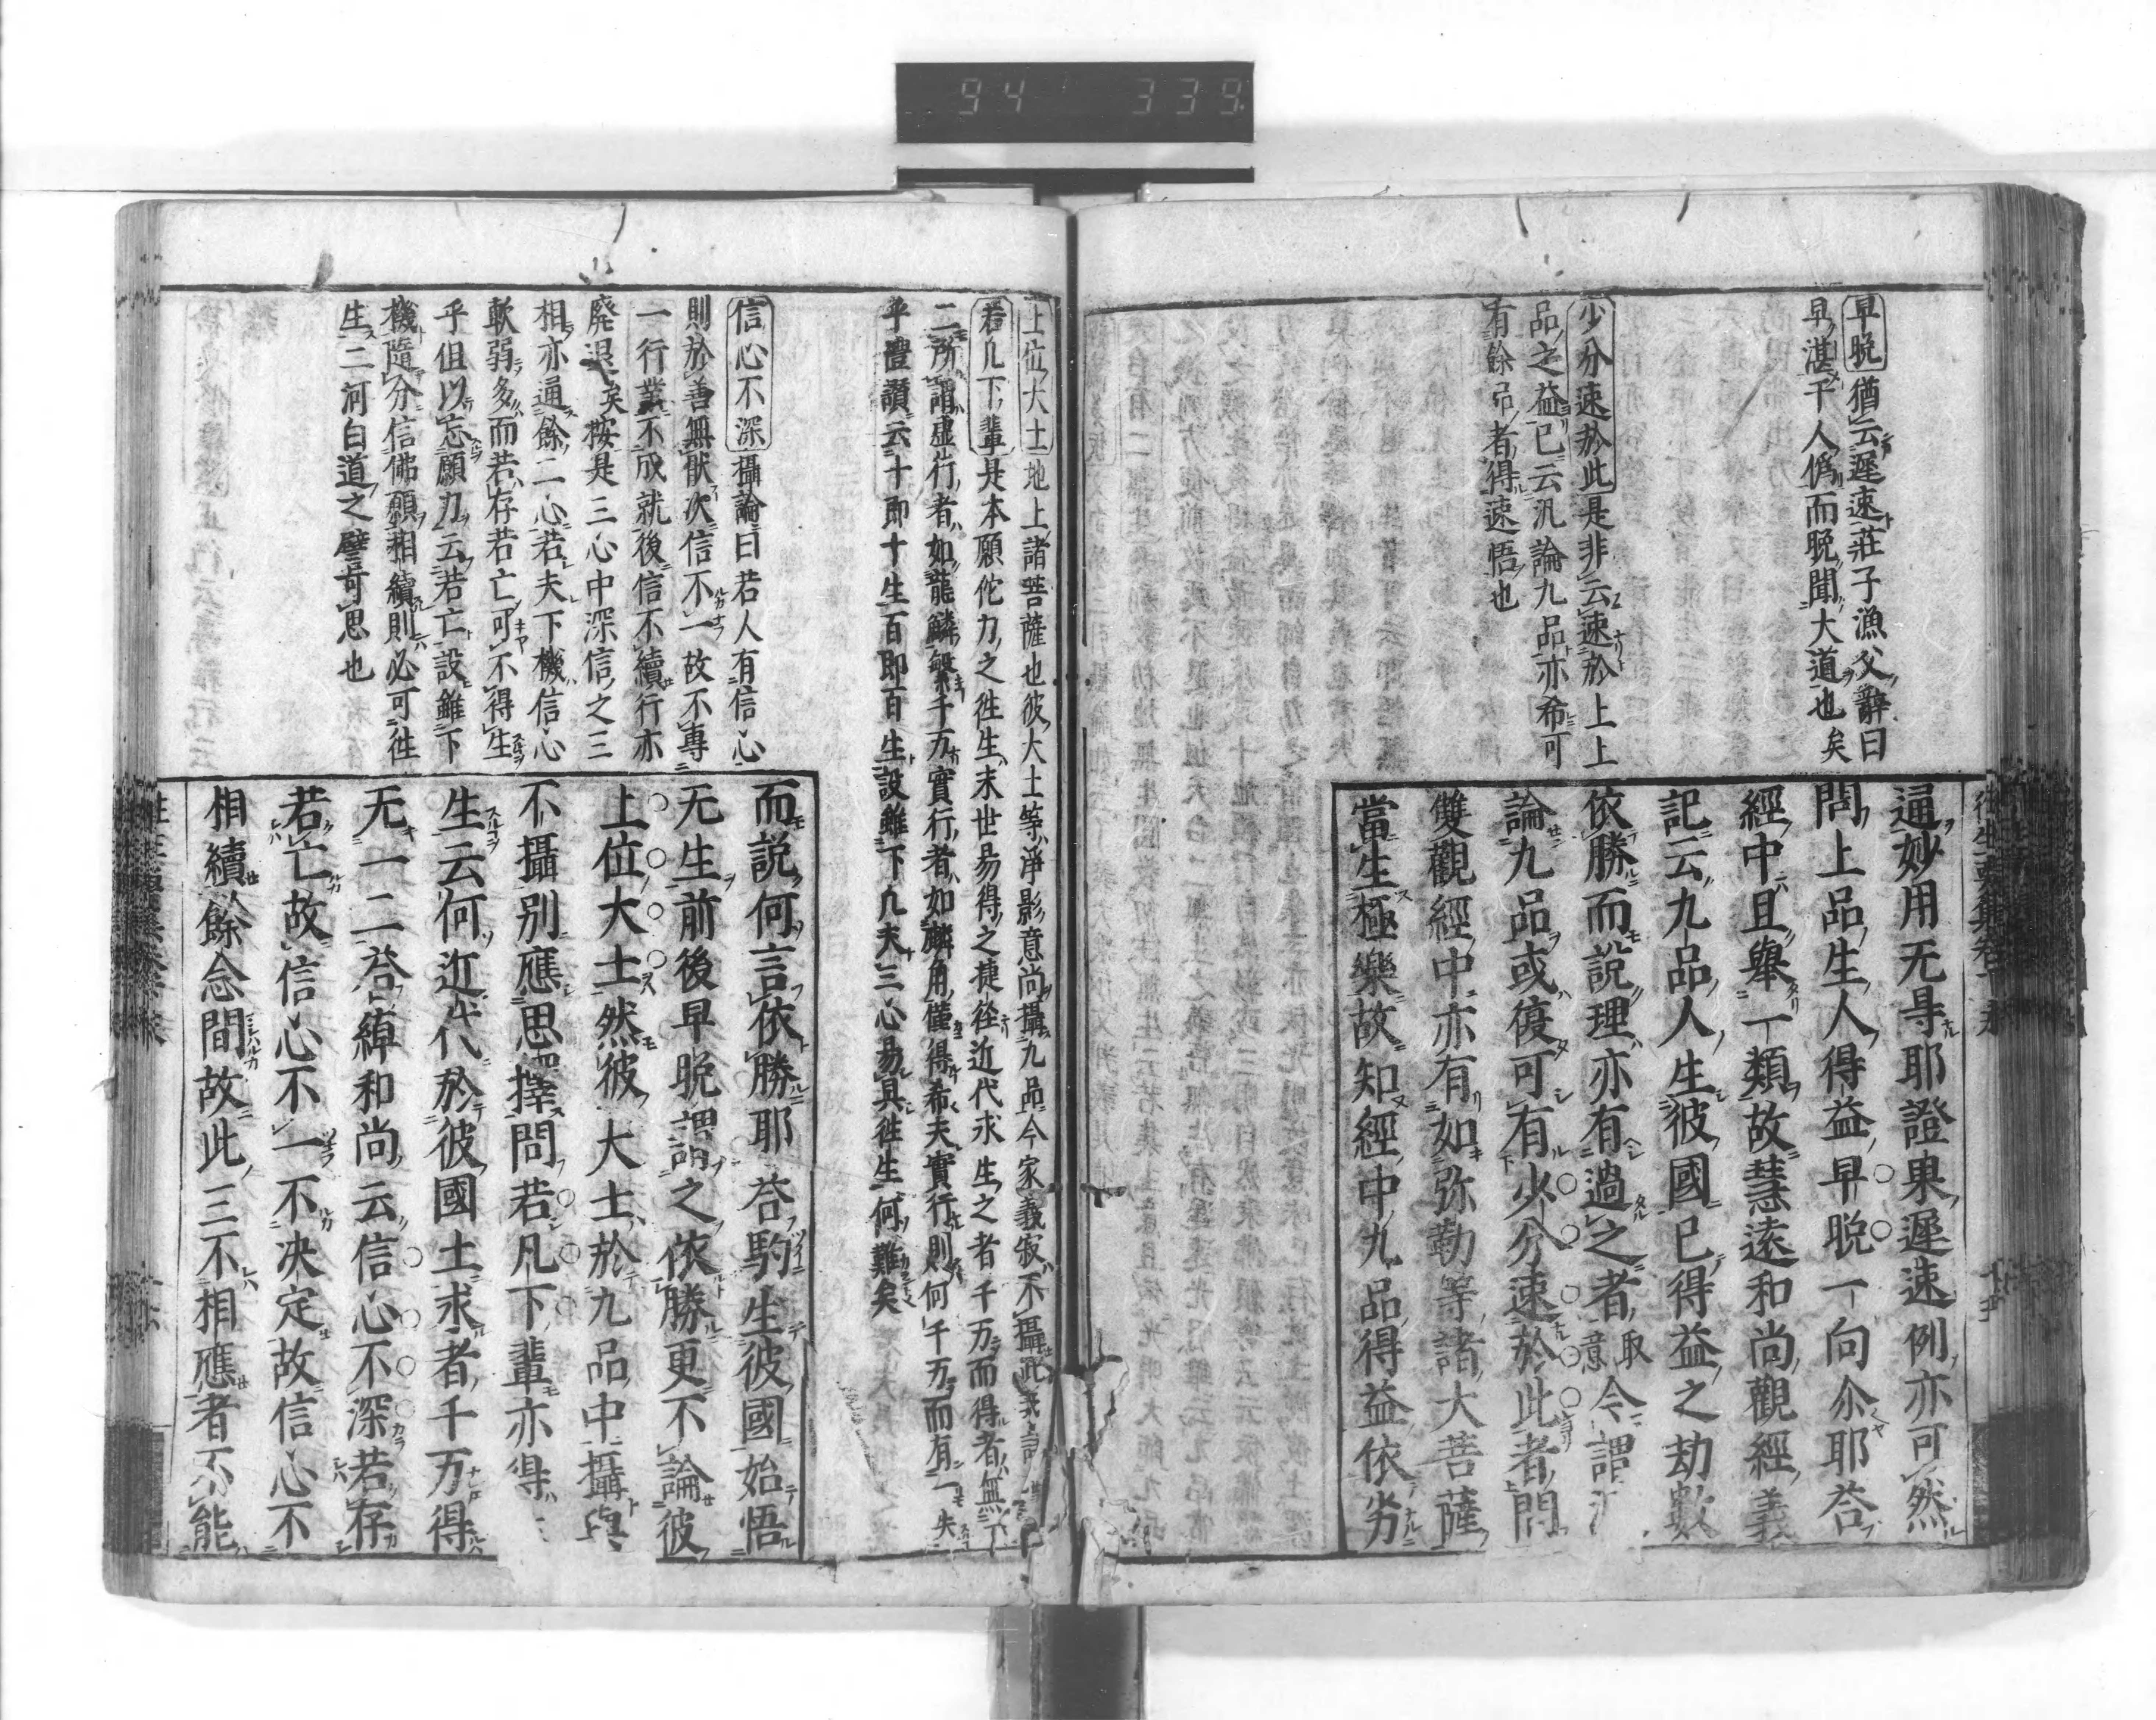 94 339
早晩猶云遲速莊子漁父辭曰
早湛于人僞而晩聞大道也矣
少分速於此是非云速於上上
品之益已云汎論九品亦希可
有餘品者得速悟也
通妙用无㝵耶證果遲速例亦可然
問上品生人得益早晩一向尒耶荅
經中且舉一類故慧遠和尚觀經義
記云九品人生彼國已得益之劫數
依勝而說理亦有過之者取意今謂
論九品或復可有少分速於此者問
雙觀經中亦有如弥勒等諸大菩薩
當生極樂故知經中九品得益依劣
上位大士地上諸菩薩也彼大士等淨影意尚攝九品今家義寂不攝
若凡下輩是本願佗力之徃生末世易得之捷徑近代求生之者千万而得者無
二所謂虚行者如龍鱗繫千万實行者如麟角僅得希夫實行則何千万而有一失
乎禮讃云十即十生百即百生設雖下凡夫三心易具徃生何難矣
信心不深攝論曰若人有信心
則於善無猒次信不一故不專
一行業不成就後信不續行亦
廃退矣按是三心中深信之三
相亦通餘二心若夫下機信心
軟弱多而若存若亡可不得生
乎但以忘願力云若亡設雖下
機隨分信佛願相續則必可徃
生二河白道之譬可思也
而說何言依勝耶荅駒生彼國始悟
无生前後早晩謂之依勝更不論彼
上位大士然彼大士於九品中攝與
不攝別應思擇問若凡下輩亦得
生云何近代於彼國土求者千万得
无一二荅綽和尚云信心不深若存
若亡故信心不一不决定故信心不
相續餘念間故此三不相應者不能